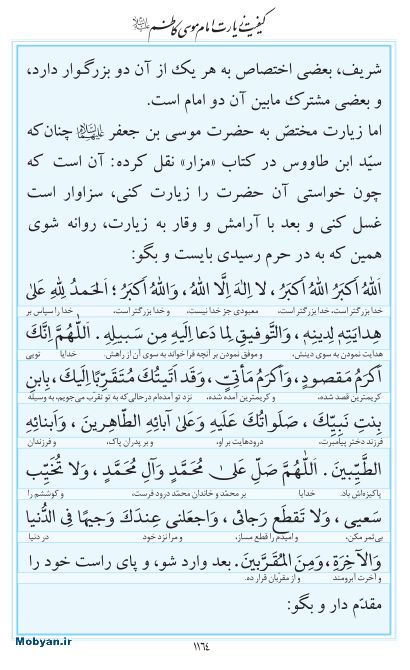 کیفیت زیارت امام موسی کاظم علیه‌السلام
شریف، بعضی اختصاص به هر یک از آن دو بزرگوار دارد،
و بعضی مشترک مابین آن دو امام است.
اما زیارت مختصّ به حضرت موسی بن جعفر علیهماالسلام چنان‌که
سیّد ابن طاووس در کتاب «مزار» نقل کرده: آن است که
چون خواستی آن حضرت را زیارت کنی، سزاوار است
غسل کنی و بعد با آرامش و وقار به زیارت، روانه شوی
همین که به در حرم رسیدی بایست و بگو:
اَللهُ اَکبَرُ اللهُ اَکبَرُ، لا اِلٰهَ اِلَّا اللهُ، وَاللهُ اَکبَرُ؛ اَلحَمدُ لِلهِ عَلیٰ
خدا بزرگتر است، خدا بزرگتر است، معبودی جز خدا نیست، و خدا بزرگتر است، خدا را سپاس بر
هِدایَتِهِ لِدینِهِ، وَالتَّوفیقِ لِما دَعا اِلَیهِ مِن سَبیلِهِ. اَللّٰهُمَّ اِنَّكَ
هدایت نمودن به سوی دینش، و موفق نمودن بر آنچه فرا خواند به سوی آن از راهش. خدایا تویی
اَکرَمُ مَقصودٍ، وَاَکرَمُ مَأتِیٍّ، وَقَد اَتَیتُكَ مُتَقَرِّبًا اِلَیكَ، بِابنِ
کریمترین قصد شده، و کریمترین آمده شده، نزد تو آمده‌ام درحالی‌که به تو تقرب می‌جویم، به وسیله
بِنتِ نَبِیِّكَ، صَلَواتُكَ عَلَیهِ وَعَلیٰ آبائِهِ الطّاهِرینَ، وَاَبنائِهِ
فرزند دختر پیامبرت، درودهایت بر او، و بر پدران پاک، و فرزندان
الطَّیِّبینَ. اَللّٰهُمَّ صَلِّ عَلیٰ مُحَمَّدٍ وَآلِ مُحَمَّدٍ، وَلا تُخَیِّب
پاکیزه‌اش باد. خدایا بر محمّد و خاندان محمّد درود فرست، و کوششم را
سَعیی، وَلا تَقطَع رَجائی، وَاجعَلنی عِندَكَ وَجیهًا فِی الدُّنیا
بی‌ثمر مکن، و امیدم را قطع مساز، و مرا نزد خود در دنیا
وَالآخِرَةِ، وَمِنَ المُقَرَّبینَ. بعد وارد شو، و پای راست خود را
و آخرت آبرومند و از مقربان قرار ده.
مقدّم دار و بگو:
۱۱۶۴
Mobyan.ir